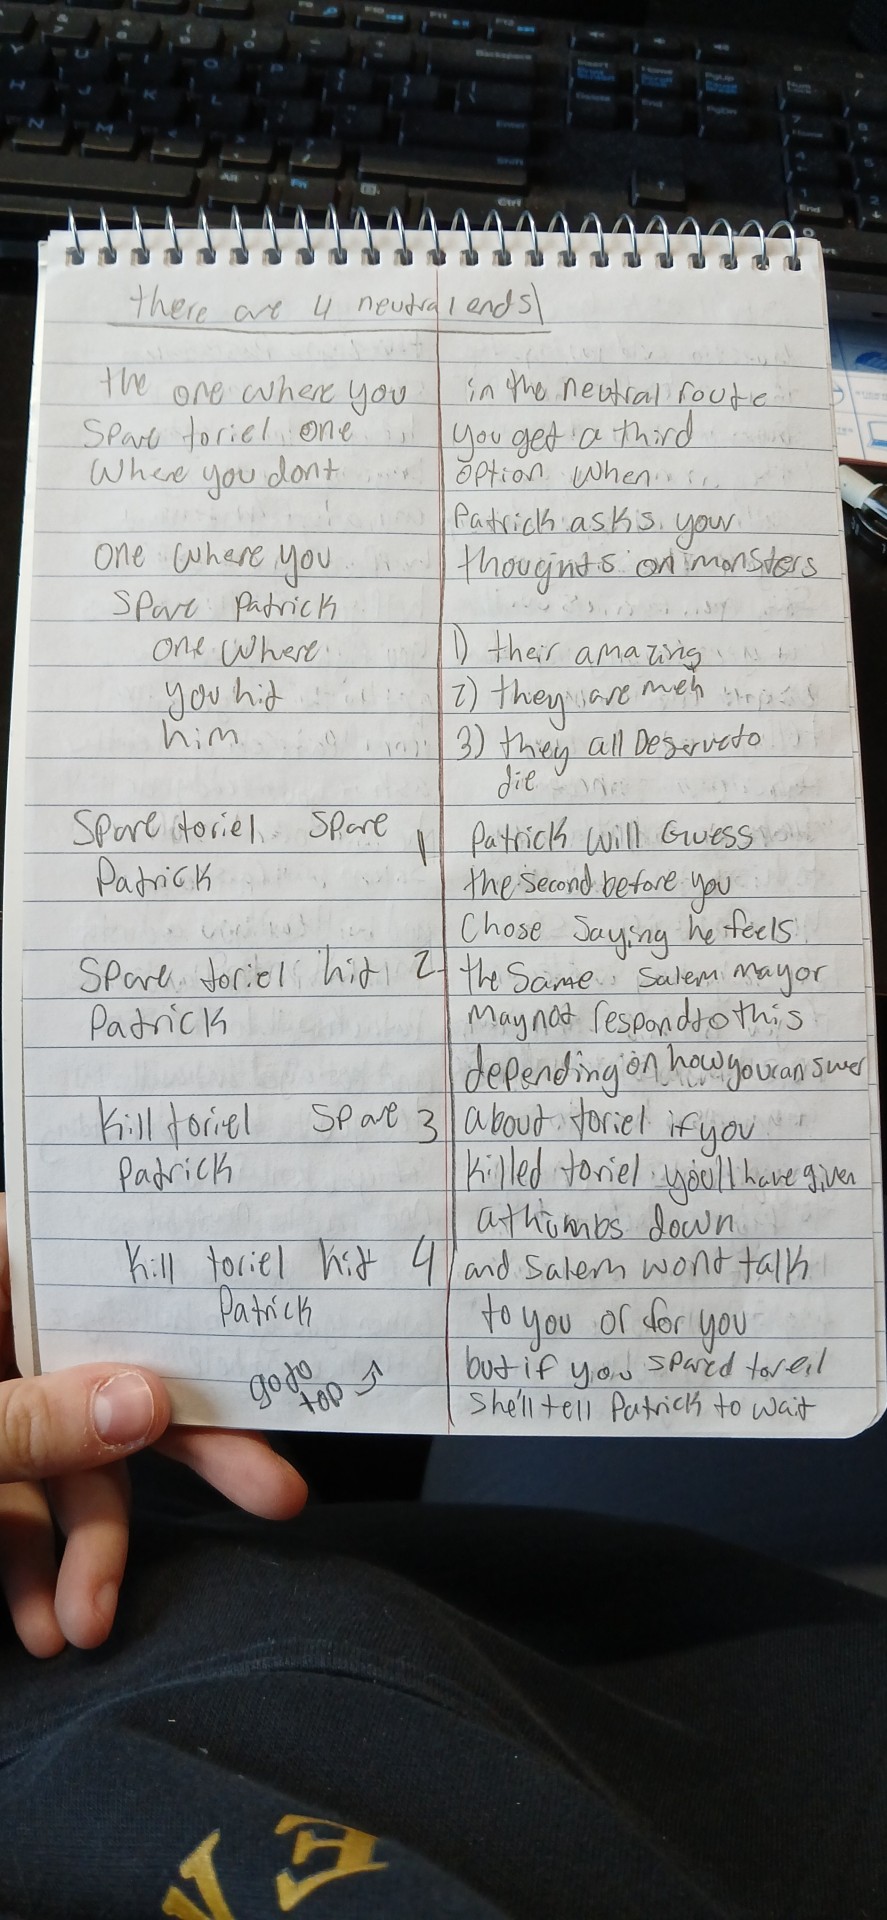 there are 4 neutral ends
the one where you
Spare toriel one
Where you dont
one where you
Spare Patrick
one where
you hit
him
Spare toriel Spare 1
Patrick
Spare toriel hit 2
Patrick
Kill toriel Spare 3
Patrick
Kill toriel hit 4
Patrick
go to
top
in the neutral route
you get a third
option when
Patrick asks your
thougnts on monsters
1) their amazing
2) they are meh
3) they all Deserve to
die
Patrick will Guess
the second before you
Chose Saying he feels
the Same. Salem may or
may not respond to this
depending on how you answer
about toriel if you
killed toriel you'll have given
a thumbs down
and Salem wont talk
to you or for you
but if you spared toreil
she'll tell Patrick to wait
Backspace
Enter
Shift
Ctrl
Alt
Fn
Insert
Home
PgUp
Delete
End
PgDn
End